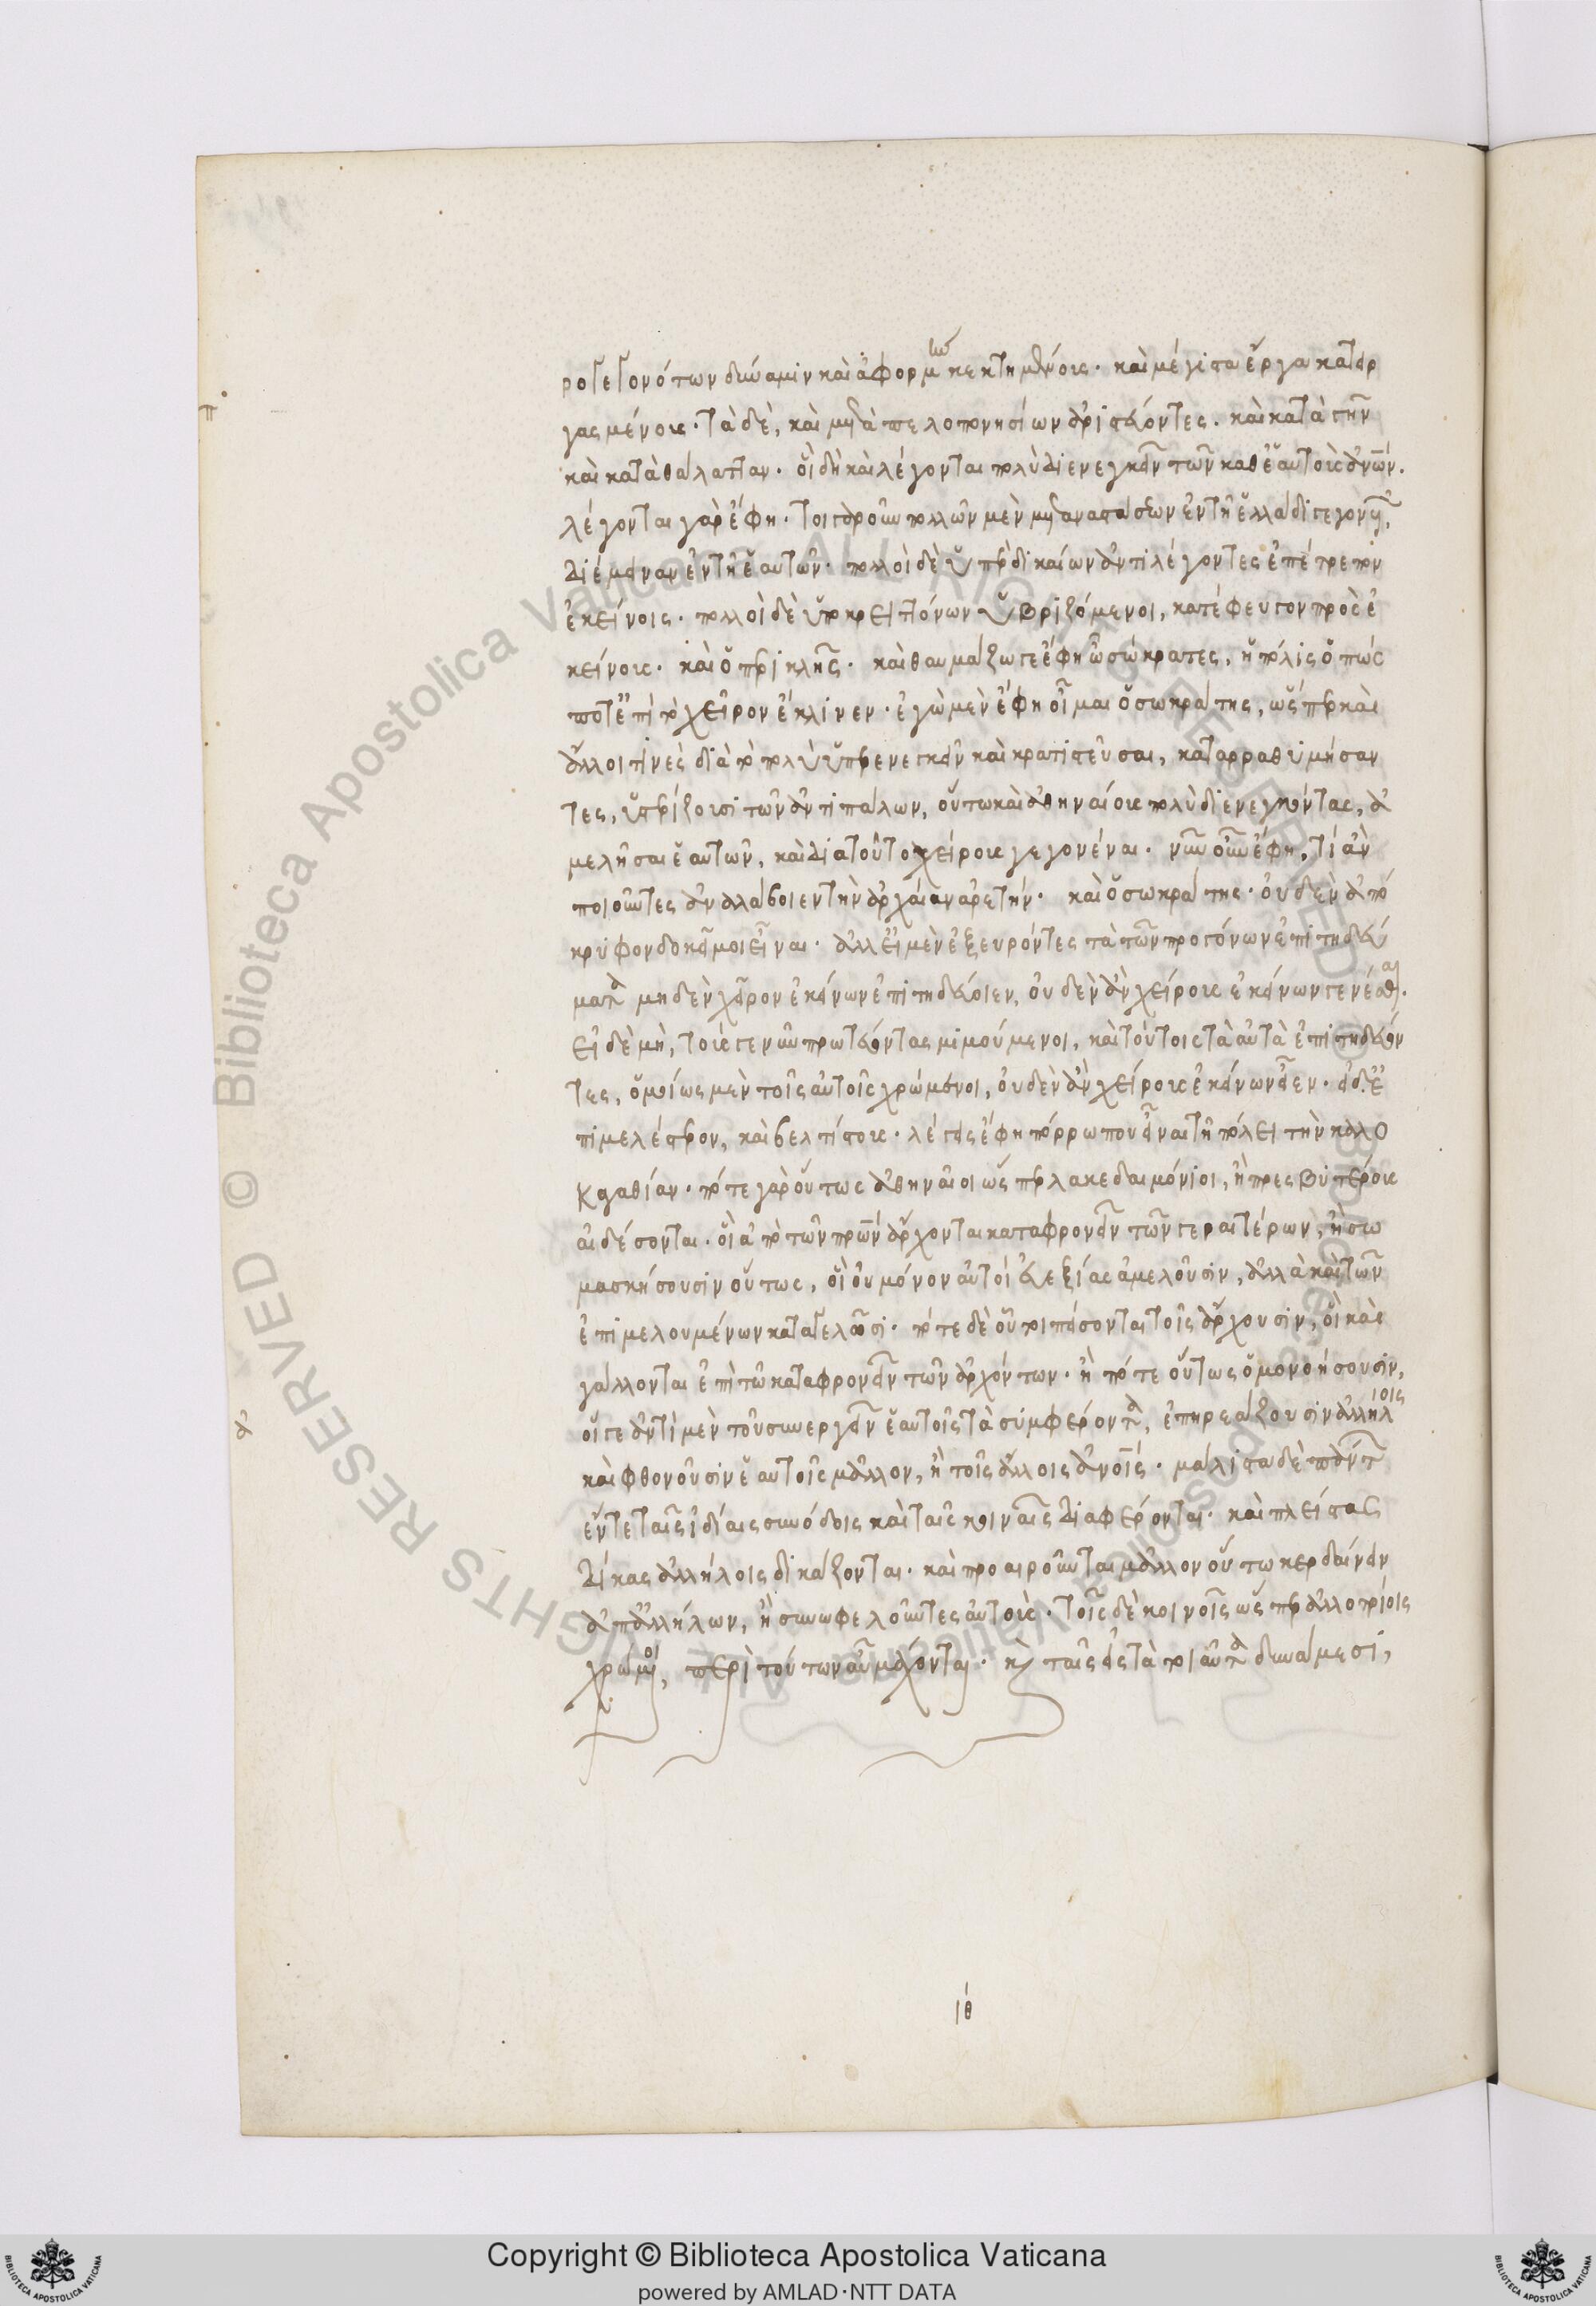 ρογεγονότων δύναμιν καὶ ἀφορμὴν κεκτημένους. καὶ μέγιστα ἔργα κατειρ
γασμένους. τὰ δὲ, καὶ μετὰ πελοπονησίων ἀριστεύοντες. καὶ κατὰ γῆν
καὶ κατὰ θάλατταν. οἳ δὴ καὶ λέγονται πολὺ διενεγκεῖν τῶν καθ' ἑαυτοὺς ἀνων.
λέγονται γὰρ ἔφη. τοιγαροῦν πολλῶν μὲν μεταναστάσεων ἐν τῆ ἑλλάδι γεγονυιῶν,
διέμειναν ἐν τῆ ἑαυτῶν. πολλοὶ δὲ ὑπὲρ δικαίων ἀντιλέγοντες ἐπέτρεπον
ἐκείνοις. πολλοὶ δὲ ὑπὸ κρειττόνων ὑβριζόμενοι, κατέφευγον πρὸς ἐ
κείνους. καὶ ὁ περικλῆς. καὶ θαυμάζω γε ἔφη ὦ σώκρατες, ἡ πόλις ὅπως
ποτὲ ἐπὶ τὸ χεῖρον ἔκλινεν. ἐγὼ μὲν ἔφη οἶμαι ὁ σωκράτης, ὥσπερ καὶ
ἄλλοι τινὲς διὰ τὸ πολὺ ὑπερενεγκεῖν καὶ κρατιστεῦσαι, καταρραθυμήσαν
τες, ὑστερίζουσι τῶν ἀντιπάλων, οὕτω καὶ ἀθηναίους πολὺ διενεγκόντας, ἀ
μελῆσαι ἑαυτῶν, καὶ διατοῦτο χείρους γεγονέναι. νῦν οὖν ἔφη, τί ἂν
ποιοῦντες ἀναλάβοιεν τὴν ἀρχαίαν ἀρετήν. καὶ ὁ σωκράτης. οὐδὲν ἀπό
κρυφον δοκεῖ μοι εἶναι. ἀλλ' εἰ μὲν ἐξευρόντες τὰ τῶν προγόνων ἐπιτηδεύ
ματα μηδὲν χεῖρον ἐκείνων ἐπιτηδεύοιεν, οὐδὲν ἂν χείρους ἐκείνων γενέσθαι.
εἰ δὲ μὴ, τούς γε νῦν πρωτεύοντας μιμούμενοι, καὶ τούτοις τὰ αὐτὰ ἐπιτηδεύον
τες, ὁμοίως μὲν τοῖς αὐτοῖς χρώμενοι, οὐδὲν ἂν χείρους ἐκείνων εἶεν. εἰ δ' ἐ
πιμελέστερον, καὶ βελτίστους. λέγεις ἔφη πόρρω που εἶναι τῆ πόλει τὴν καλο
καγαθίαν. πότε γὰρ οὕτως ἀθηναῖοι ὥσπερ λακεδαιμόνιοι, ἢ πρεσβυτέρους
αἰδέσονται. οἳ ἀπὸ τῶν πρων ἄρχονται καταφρονεῖν τῶν γεραιτέρων, ἢ σω
μασκήσουσιν οὕτως, οἳ οὐ μόνον αὐτοὶ εὐεξίας ἀμελοῦσιν, ἀλλὰ καὶ τῶν
ἐπιμελουμένων καταγελῶσι. πότε δὲ οὕτω πείσονται τοῖς ἄρχουσιν, οἳ καὶ ἀ
γάλλονται ἐπὶ τῶ καταφρονεῖν τῶν ἀρχόντων. ἢ πότε οὕτως ὁμονοήσουσιν,
οἵ γε ἀντὶ μὲν τοῦ συνεργεῖν ἑαυτοῖς τὰ συμφέροντα, ἐπηρεάζουσιν ἀλλήλοις
καὶ φθονοῦσιν ἑαυτοῖς μᾶλλον, ἢ τοῖς ἄλλοις ἀνοις. μάλιστα δὲ πάντων
ἔν τε ταῖς ἰδίαις συνόδοις καὶ ταῖς κοιναῖς διαφέρονται. καὶ πλείστας
δίκας ἀλλήλοις δικάζονται. καὶ προαιροῦνται μᾶλλον οὕτω κερδαίνειν
ἀπ' ἀλλήλων, ἢ συνωφελοῦντες αὑτούς. τοῖς δὲ κοινοῖς ὥσπερ ἀλλοτρίοις
χρώμενοι, περὶ τούτων αὖ μάχονται. καὶ ταῖς εἰς τὰ τοιαῦτα δυνάμεσι,
ιθ
Copyright © Biblioteca Apostolica Vaticana
powered by AMLAD·NTT DATA